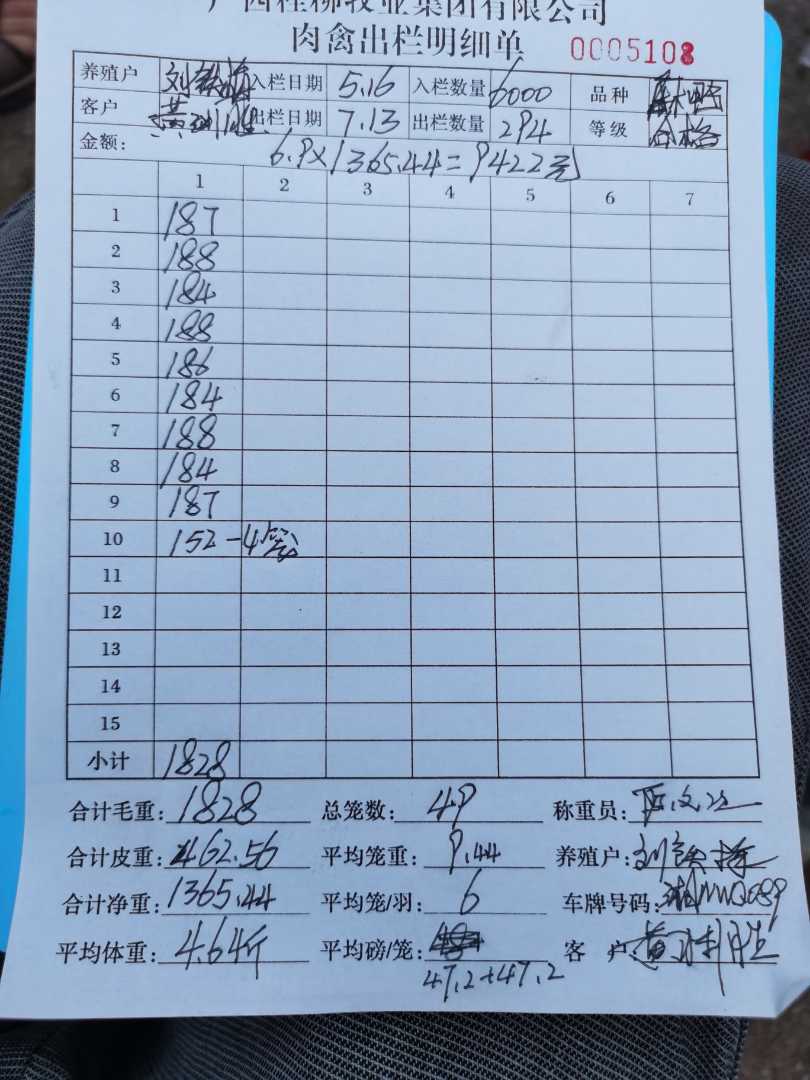 广西桂柳牧业集团有限公司
肉禽出栏明细单 0005108
养殖户 刘 入栏日期 5.16 入栏数量 6000 品种
客户 黄 出栏日期 7.13 出栏数量 294 等级 合格
金额: 6.9×1365.44=9422元
1 2 3 4 5 6 7
1 187
2 188
3 184
4 188
5 186
6 184
7 188
8 184
9 187
10 152-4笼
11
12
13
14
15
小计 1828
合计毛重: 1828 总笼数: 49 称重员:
合计皮重: 462.56 平均笼重: 9.44 养殖户: 刘
合计净重: 1365.44 平均笼/羽: 6 车牌号码:
平均体重: 4.64斤 平均磅/笼: 客户 黄
47.2+47.2